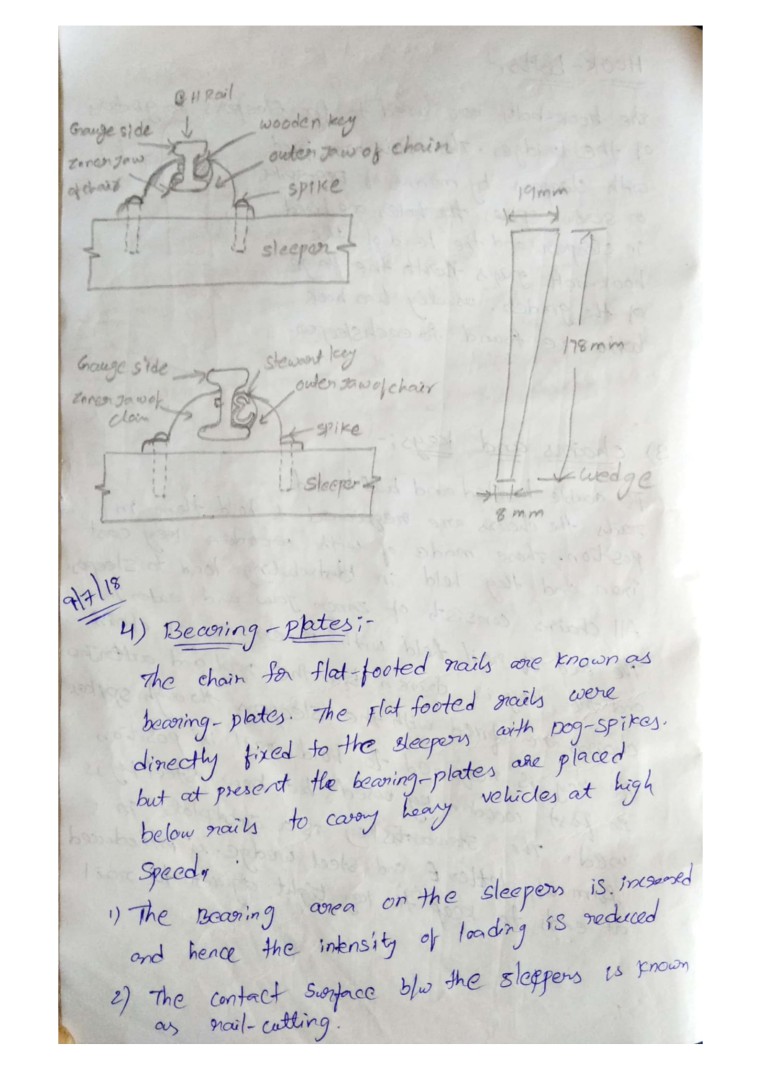 BH Rail
Gauge side
wooden key
outer Jaw of chair
Zoner Jaw
of chair
spike
sleeper
19mm
178 mm
wedge
8 mm
Gauge side
stewart key
outer Jaw of chair
Zoner Jaw of
chain
spike
Sleeper
9/7/18
4) Bearing-plates:-
The chair for flat-footed rails are known as
bearing-plates. The flat footed rails were
directly fixed to the sleepers with Dog-spikes.
but at present the bearing-plates are placed
below rails to carry heavy vehicles at high
Speed,
1) The Bearing area on the sleepers is increased
and hence the intensity of loading is reduced
2) The contact surface b/w the sleepers is known
as rail-cutting.